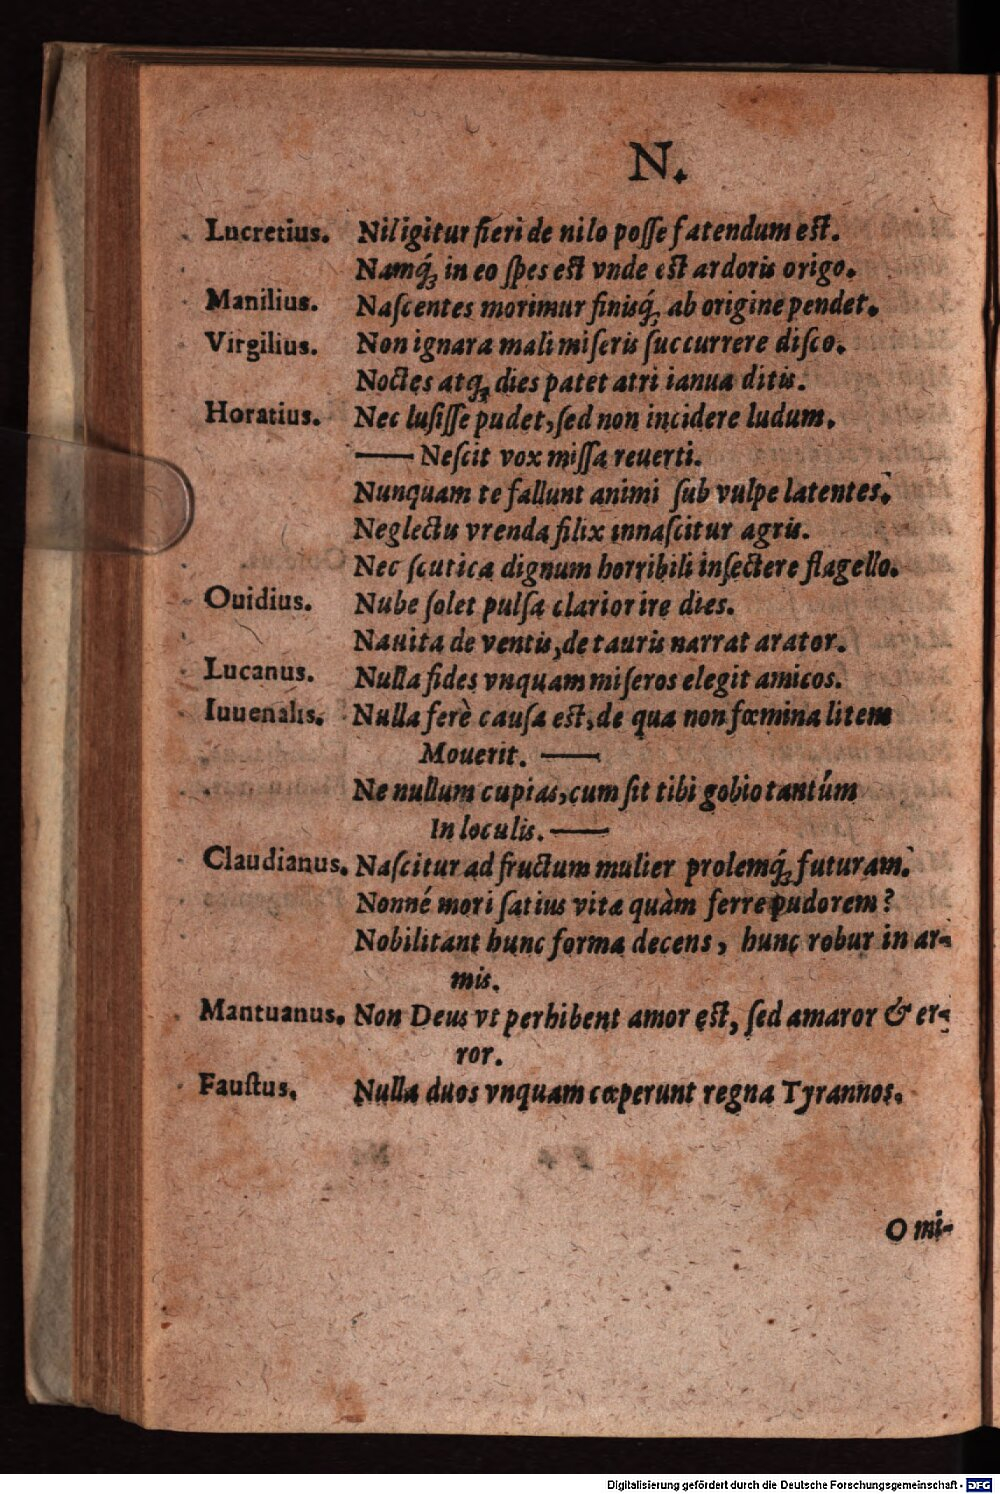 N.
Lucretius. Nil igitur fieri de nilo posse fatendum est.
Namq́; in eo spes est vnde est ardoris origo.
Manilius. Nascentes morimur finisq́; ab origine pendet.
Virgilius. Non ignara mali miseris succurrere disco.
Noctes atq; dies patet atri ianua ditis.
Horatius. Nec lusisse pudet, sed non incidere ludum.
—— Nescit vox missa reuerti.
Nunquam te fallunt animi sub vulpe latentes.
Neglectis vrenda filix innascitur agris.
Nec scutica dignum horribili insectere flagello.
Ouidius. Nube solet pulsa clarior ire dies.
Nauita de ventis, de tauris narrat arator.
Lucanus. Nulla fides vnquam miseros elegit amicos.
Iuuenalis. Nulla ferè causa est, de qua non fœmina litem
Mouerit. ——
Ne nullum cupias, cum sit tibi gobio tantúm
In loculis. ——
Claudianus. Nascitur ad fructum mulier prolemq́; futuram.
Nonné mori satius vita quàm ferre pudorem?
Nobilitant hunc forma decens, hunc robur in ar-
mis.
Mantuanus. Non Deus vt perhibent amor est, sed amaror & er-
ror.
Faustus. Nulla duos vnquam cœperunt regna Tyrannos.
O mi-
Digitalisierung gefördert durch die Deutsche Forschungsgemeinschaft - DFG